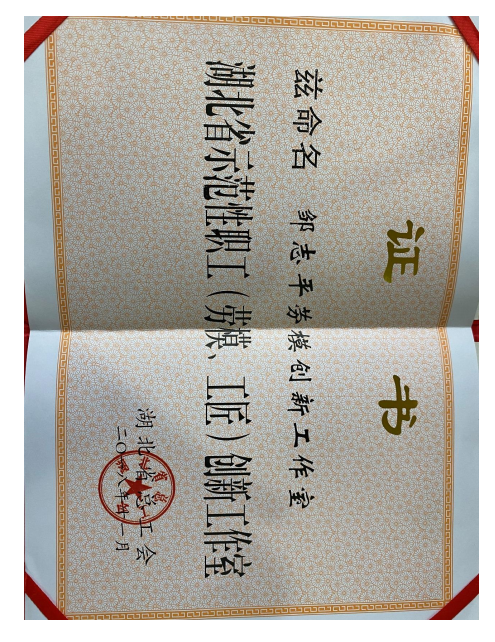 证书
兹命名 邹志平劳模创新工作室
湖北省示范性职工（劳模、工匠）创新工作室
湖北省总工会
二〇一八年十一月